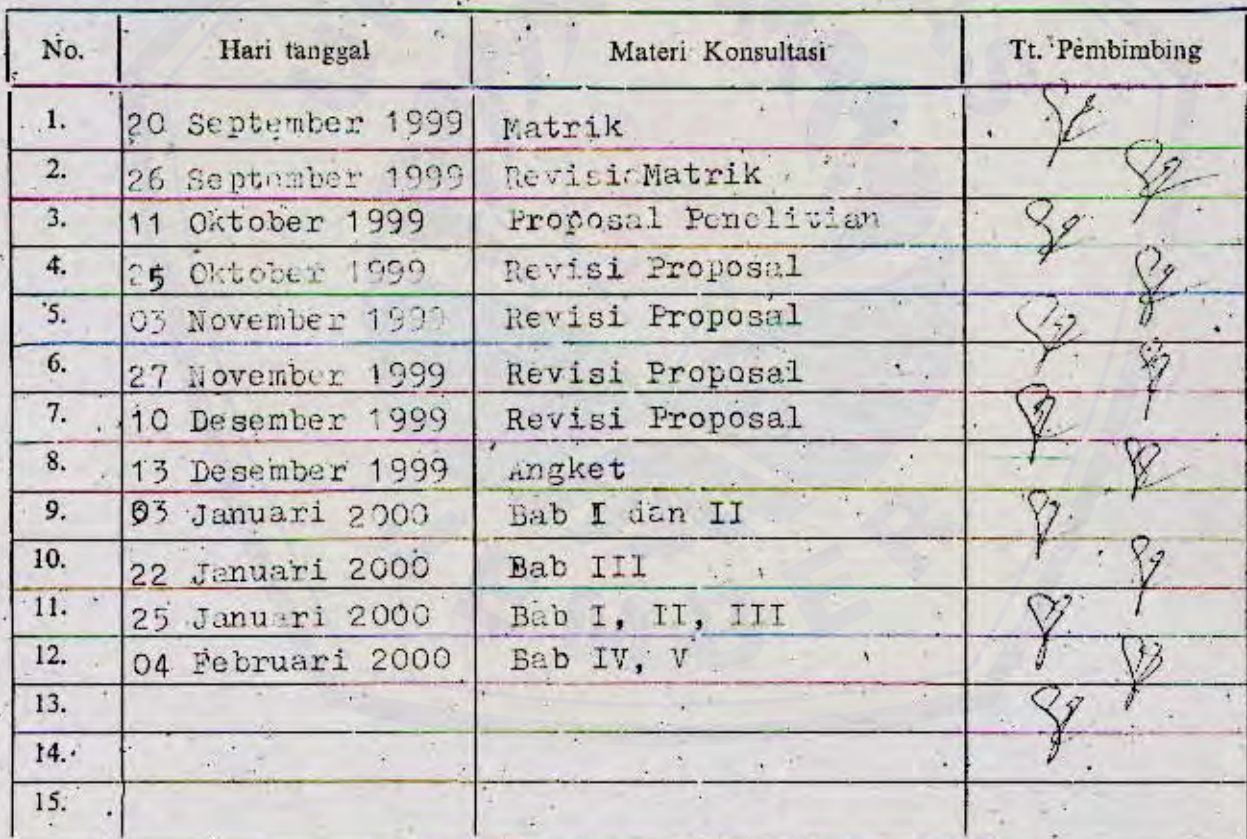 No. Hari tanggal Materi Konsultasi Tt. Pembimbing
1. 20 September 1999 Matrik
2. 26 September 1999 Revisi Matrik
3. 11 Oktober 1999 Proposal Penelitian
4. 25 Oktober 1999 Revisi Proposal
5. 03 November 1999 Revisi Proposal
6. 27 November 1999 Revisi Proposal
7. 10 Desember 1999 Revisi Proposal
8. 13 Desember 1999 Angket
9. 03 Januari 2000 Bab I dan II
10. 22 Januari 2000 Bab III
11. 25 Januari 2000 Bab I, II, III
12. 04 Februari 2000 Bab IV, V
13.
14.
15.